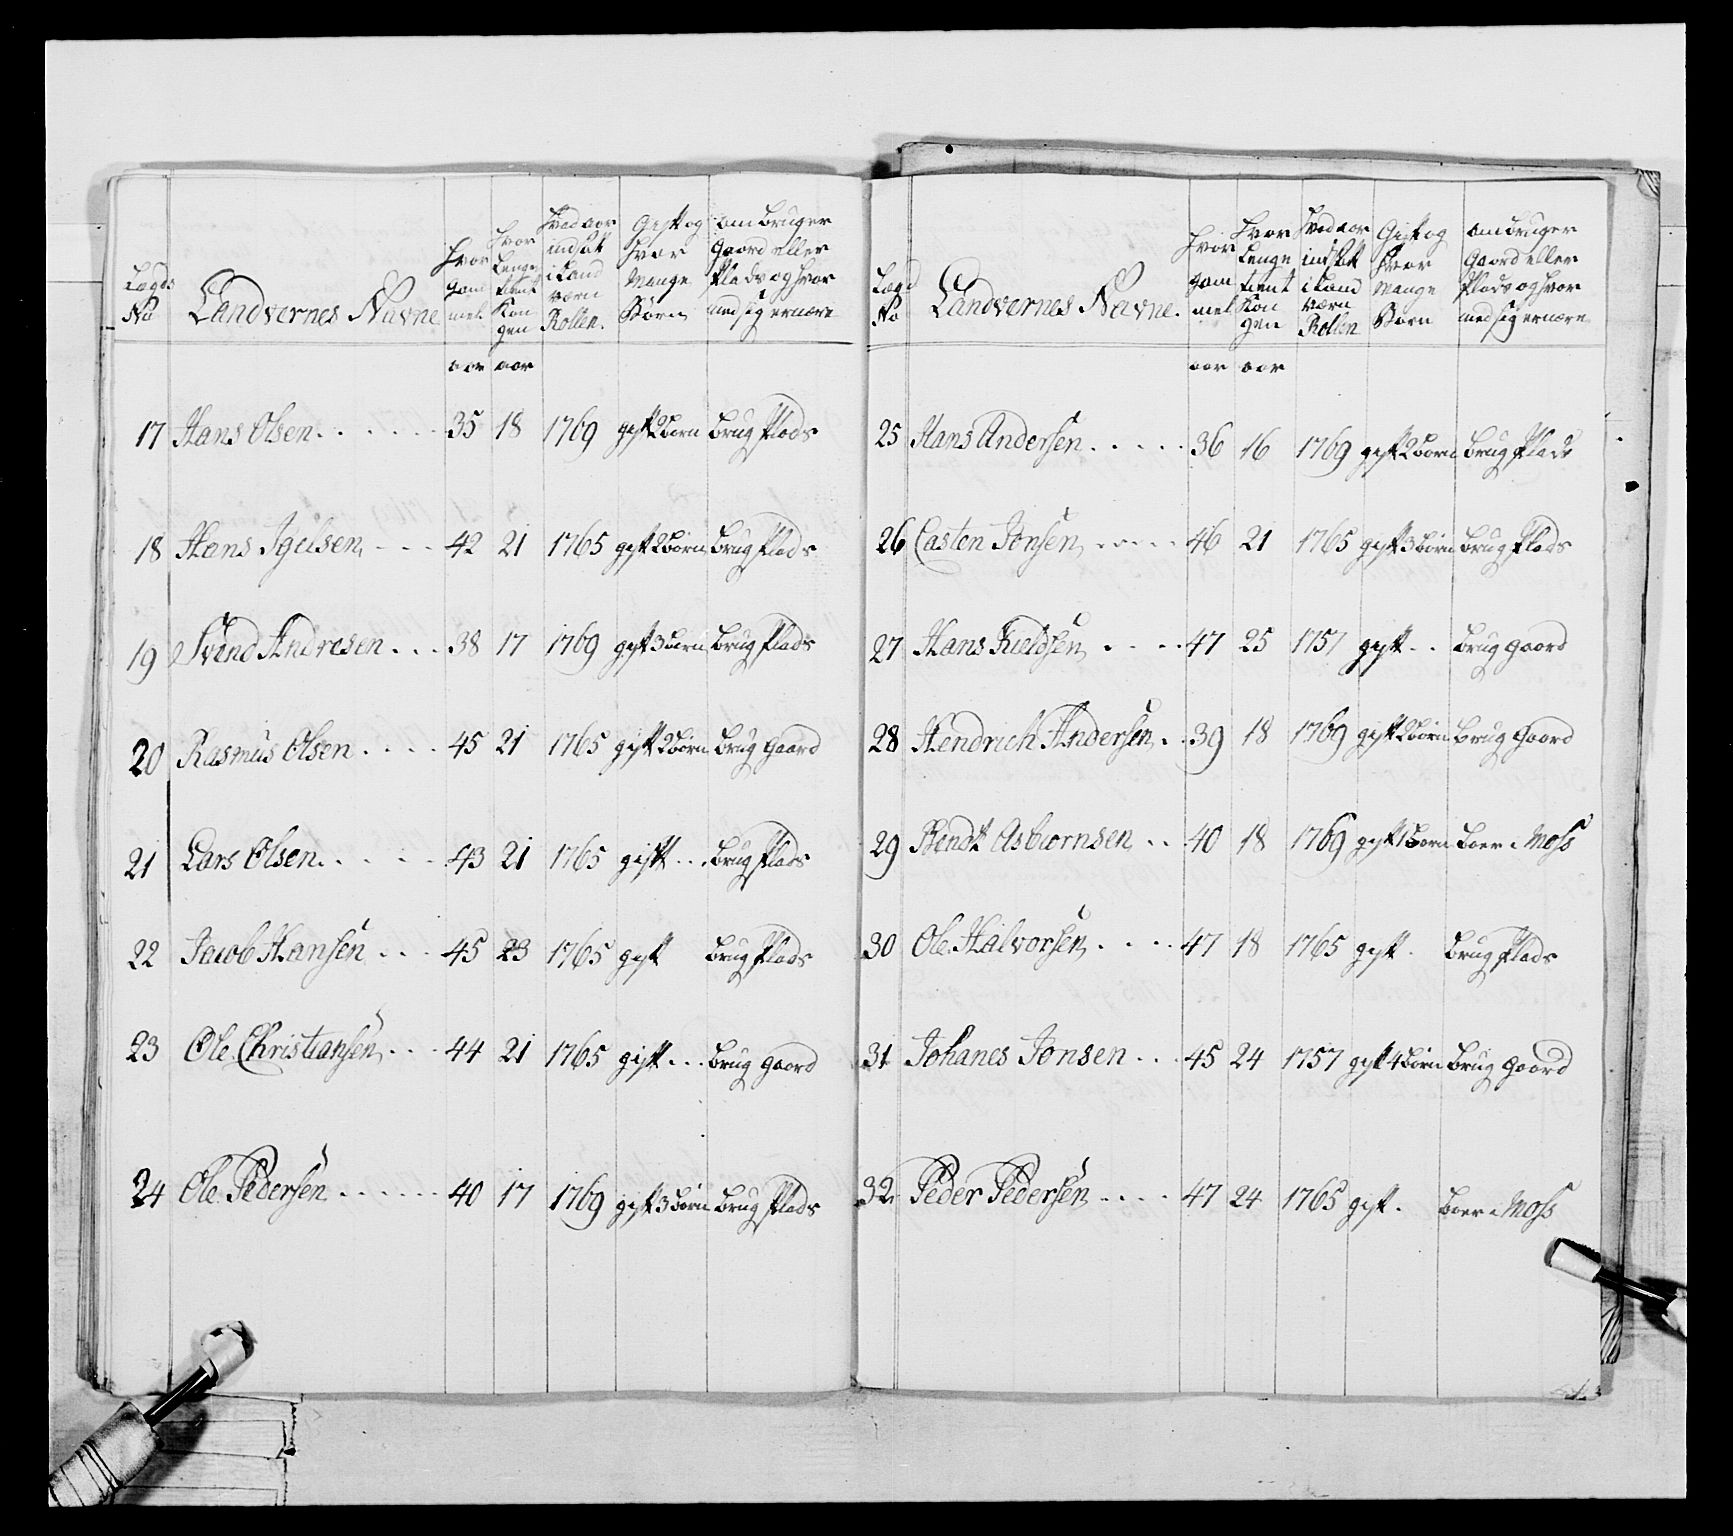 Lægds No | Landvernes Navne | Hvor gammel | Hvor Lenge tient Kongen | Hvad aar indsat i Land værn Rollen. | Gift og Hvor Mange Børn | om bruger Gaard eller Plads og hvor med sig ernære
aar | aar
17 Hans Olsen . . . . . . 35 18 1769 gift 2 børn Brug Plads
18 Hans Igelsen - - - 42 21 1765 gift 2 børn Brug Plads
19 Svend Andresen . . . 38 17 1769 gift 3 børn Brug Plads
20 Rasmus Olsen . . . . 45 21 1765 gift 2 børn Brug Gaard
21 Lars Olsen . . . . . 43 21 1765 gift . . . Brug Plads
22 Jacob Hansen . . . 45 23 1765 gift Brug Plads
23 Ole Christiansen . . . 44 21 1765 gift . . . Brug Gaard
24 Ole Pedersen . . . . . . 40 17 1769 gift 3 børn Brug Plads
Lægd No | Landvernes Navne. | Hvor gammel | Hvor Lenge tient Kongen | Hvad aar indsatt i Land værn Rollen | Gift og Hvor Mange Børn | om bruger Gaard eller Plads og hvor med sig ernære
aar | aar
25 Hans Andersen . . . . . 36 16 1769 gift 2 børn Brug Plads
26 Casten Jonsen . . . . . 46 21 1765 gift 3 børn Brug Plads
27 Hans Kieldsen . . . . 47 25 1757 gift . . Brug Gaard
28 Hendrich Andersen . . 39 18 1769 gift 2 børn Brug Gaard
29 Bendt Asbiørnsen . . . 40 18 1769 gift 1 barn Boer i Moss
30 Ole Halvorsen . . . . 47 18 1765 gift . Brug Plads
31 Johanes Jonsen . . . 45 24 1757 gift 4 børn Brug Gaard
32 Peder Pedersen . . . . 47 24 1765 gift . Boer i Moss